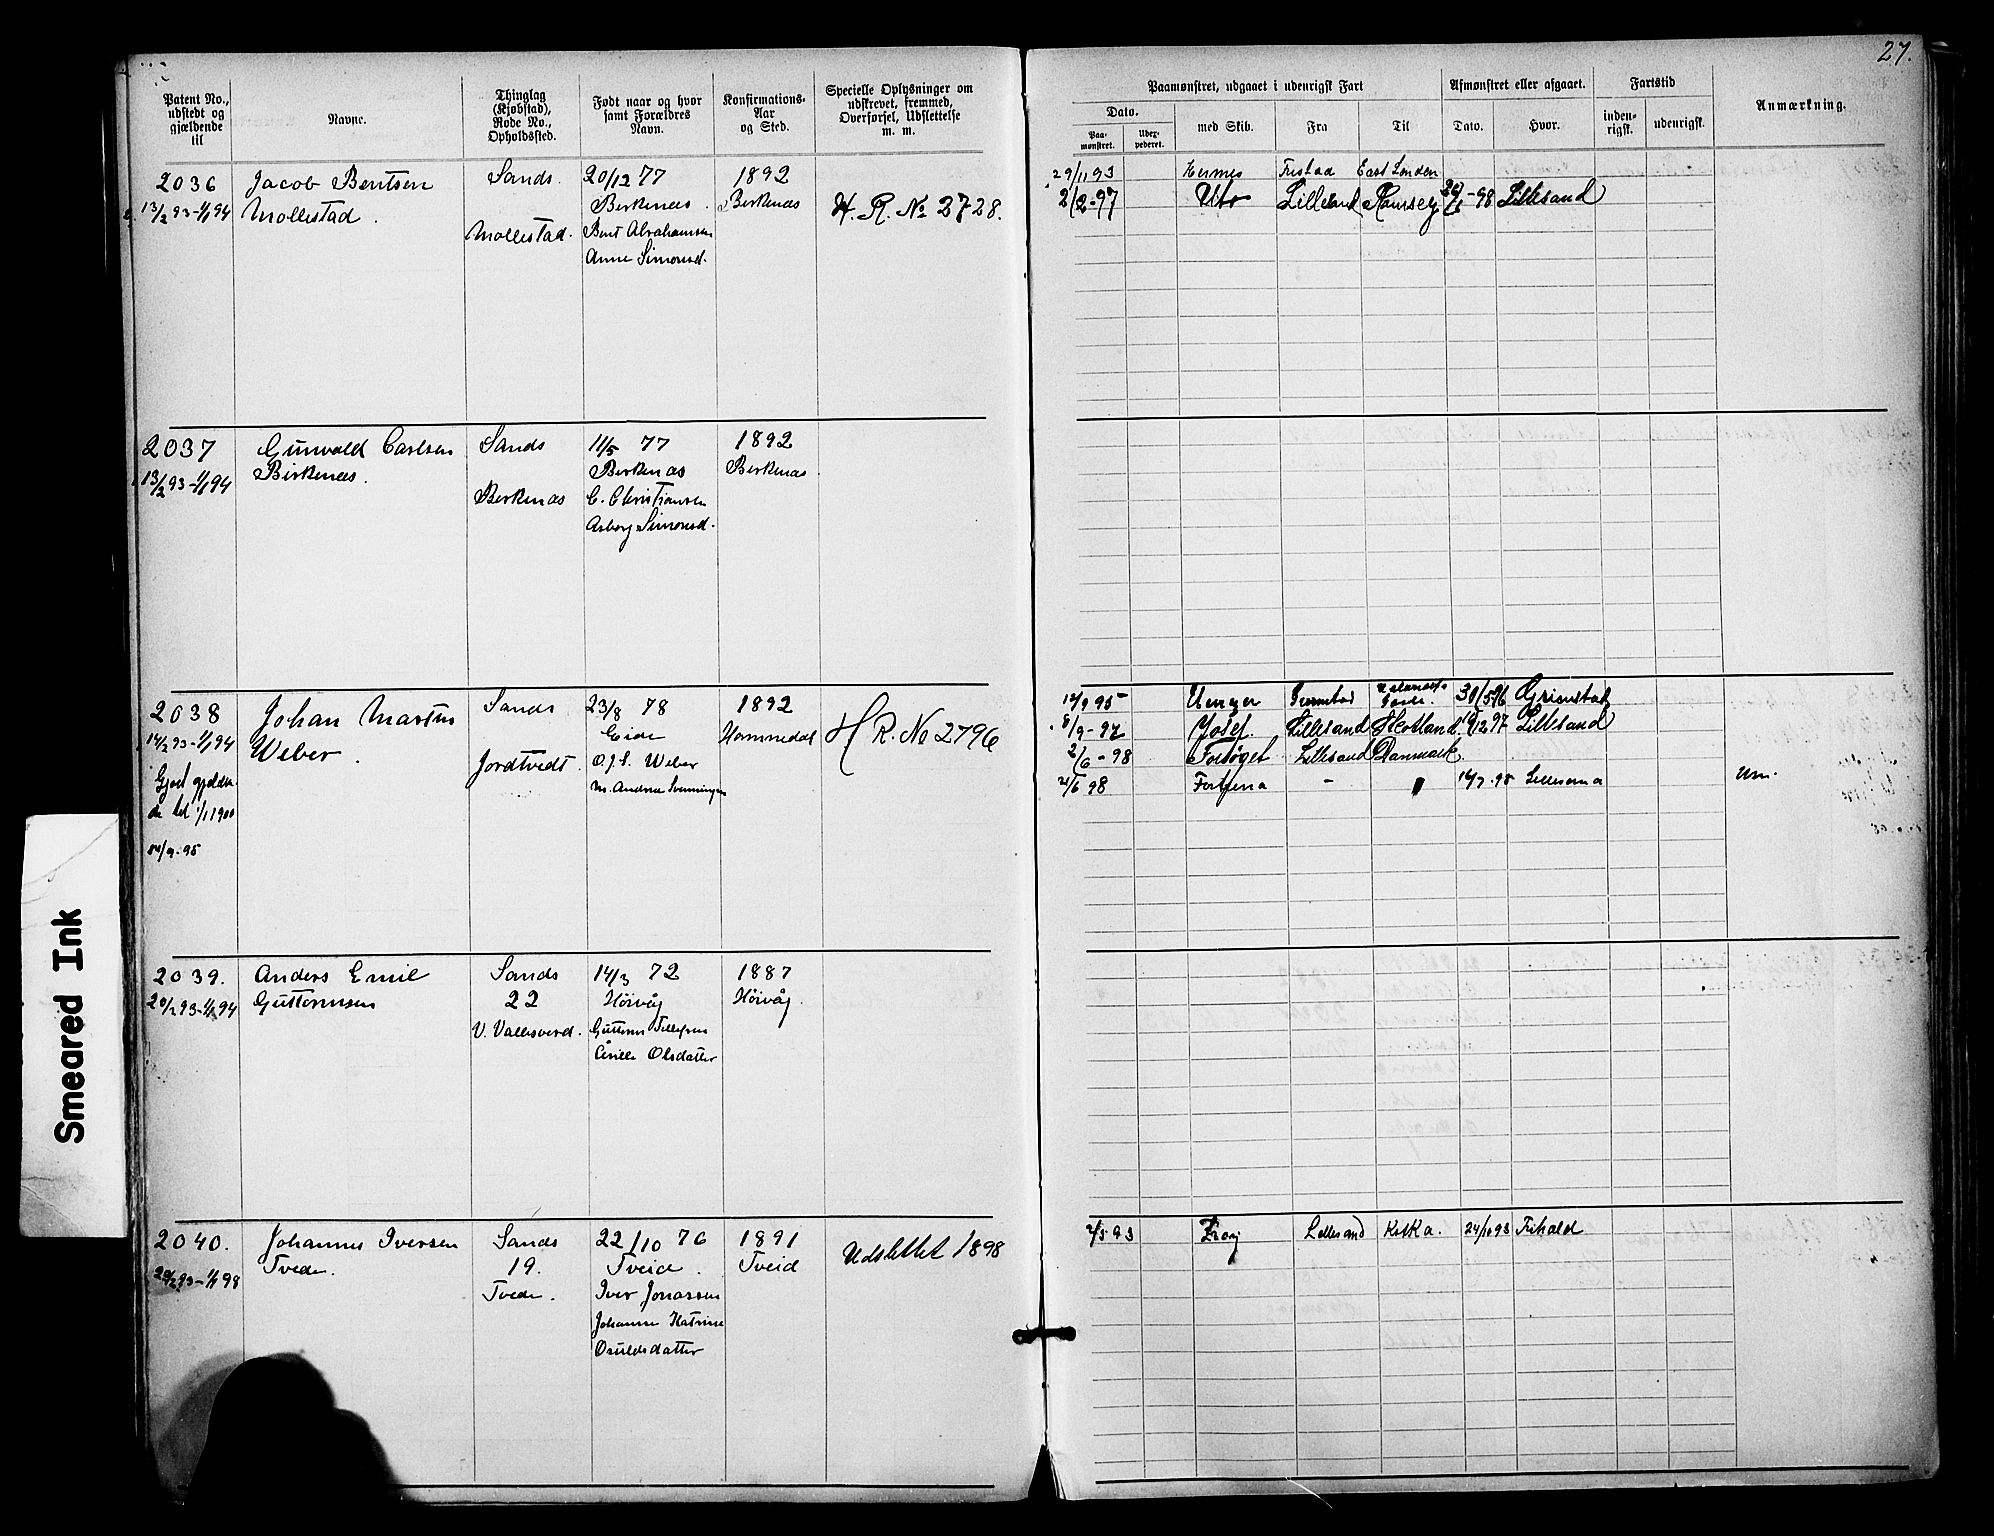 27.
Patent No., udstedt og gjældende til
Navne.
Thinglag (Kjøbstad), Rode No., Opholdssted.
Født naar og hvor samt Forældres Navn.
Konfirmations-Aar og Sted.
Specielle Oplysninger om udskrevet, fremmed, Overførsel, Udslettelse m. m.
Paamønstret, udgaaet i udenrigsk Fart
Dato.
Paa-mønstret.
Udex-pederet.
med Skib.
Fra
Til
Afmønstret eller afgaaet.
Dato.
Hvor.
Fartstid
inden-rigsk.
udenrigsk.
Anmærkning.
2036 Jacob Bentsen Sands. 20/12 77 1892
13/2 93-1/1 94 Mollestad. Birkenæs. Birkenæs H. R. No 2728.
Mollestad. Bent Abrahamsen
Anne Simonsd.
29/11 93 Hermes East London
2/2-97 Lillesand Ramsey -98 Lillesand
2037 Gunvald Carlsen Sands 11/5 77 1892
13/2 93-1/1 94 Birkenæs. Birkenæs Birkenæs
Birkenæs C. Christiansen
Asborg Simonsd.
2038 Johan Martin Sands 23/8 78 1892
14/2 93-1/1 94 Weber. Eide Hommedal H R. No 2796
Jordtvedt. O. J. S. Weber
Gjort gjælden- M. Andrea Svenningsen
de til 1/1 1900
14/9-95
12/9 95 Unger Grimstad 30/5 96 Grimstad
8/9-97 Josef. Lillesand Skotland. 19/12 97 Lillesand
2/6-98 Forsøget Lillesand Danmark
21/6 98 Fortuna - " 14/7-98 Lillesand Um.
2039. Anders Emil Sands 14/3 72 1887
20/2 93-1/1 94 Guttormsen 22 Höivåg Höivåg.
V. Vallesverd. Guttorm Tellefsen
Olsdatter
2040. Johannes Iversen Sands 22/10 76 1891 Udslettet 1898
20/2 93-1/1 98 Tvede. 19. Tveid. Tveid
Tvede. Iver Jonassen
Johanne Katrine
Osuldsdatter
2/5 93 Lillesand Kotka. 24/10 93 Frhald
Smeared Ink